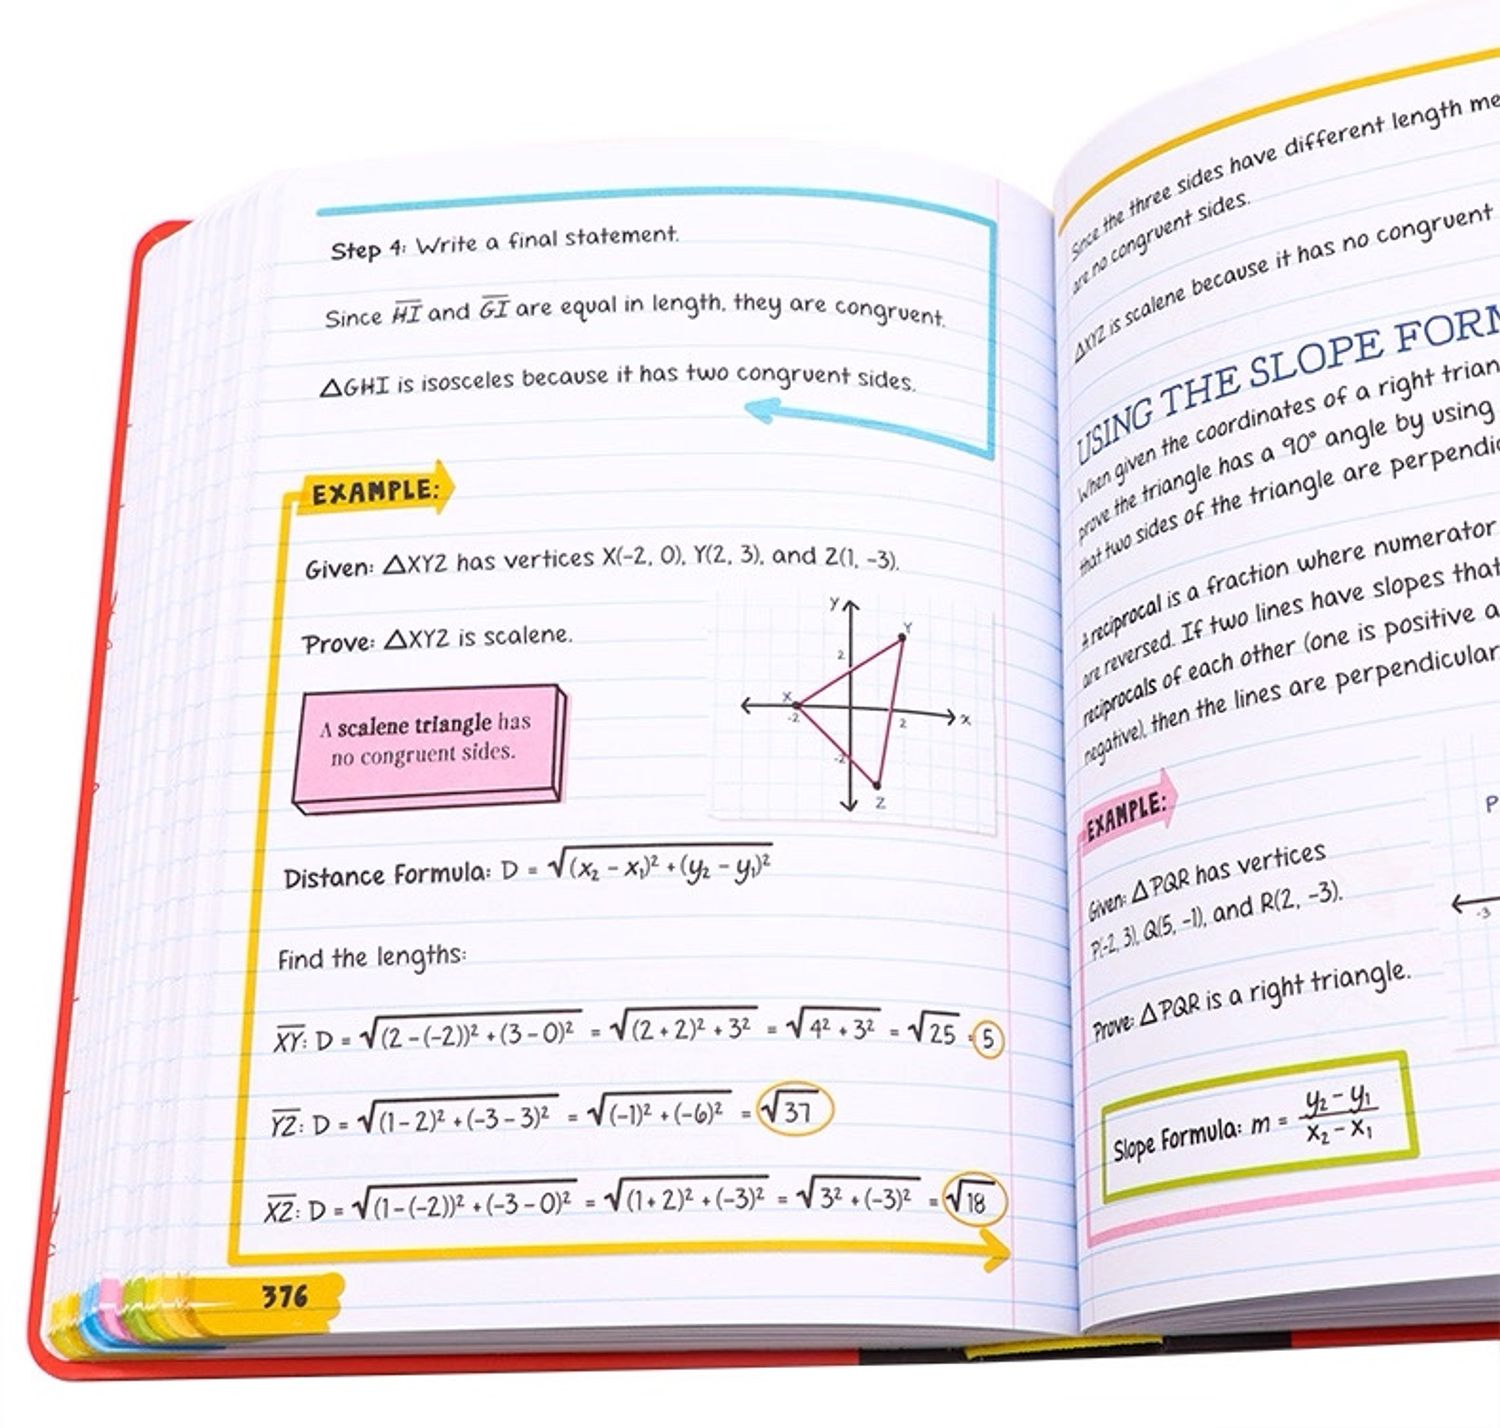 Step 4: Write a final statement.
Since H̅I̅ and G̅I̅ are equal in length, they are congruent.
△GHI is isosceles because it has two congruent sides.
EXAMPLE:
Given: △XYZ has vertices X(-2, 0), Y(2, 3), and Z(1, -3).
Prove: △XYZ is scalene.
A scalene triangle has
no congruent sides.
y
Y
2
X
-2
2
x
-2
Z
Distance Formula: D = √((x₂ - x₁)² + (y₂ - y₁)²)
Find the lengths:
X̅Y̅: D = √((2 - (-2))² + (3 - 0)²) = √((2 + 2)² + 3²) = √(4² + 3²) = √25 = 5
Y̅Z̅: D = √((1 - 2)² + (-3 - 3)²) = √((-1)² + (-6)²) = √37
X̅Z̅: D = √((1 - (-2))² + (-3 - 0)²) = √((1 + 2)² + (-3)²) = √(3² + (-3)²) = √18
376
Since the three sides have different length
are no congruent sides.
△XYZ is scalene because it has no congruent
USING THE SLOPE
When given the coordinates of a right
prove the triangle has a 90° angle by using
that two sides of the triangle are
A reciprocal is a fraction where numerator
are reversed. If two lines have slopes that
reciprocals of each other (one is positive a
negative), then the lines are perpendicular
EXAMPLE:
P
-3
Given: △PQR has vertices
P(-2, 3), Q(5, -1), and R(2, -3).
Prove: △PQR is a right triangle.
Slope Formula: m = (y₂ - y₁)/(x₂ - x₁)